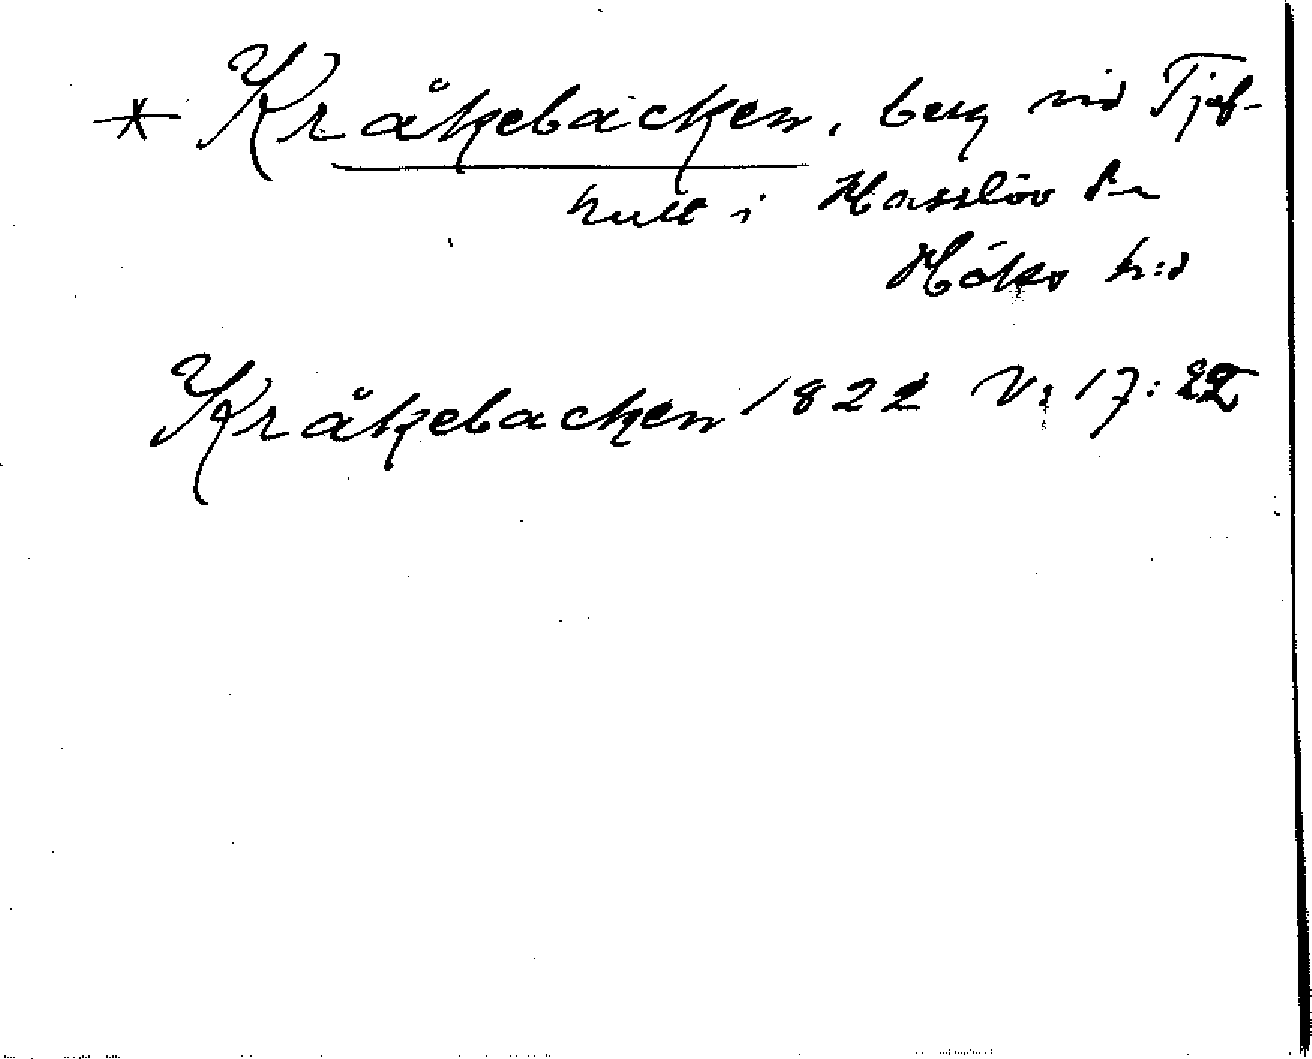 * Kråkebacken, berg vid Tjuf-
hult i Hasslöv sn
Höks h:d
Kråkebacken 1822 V: 17: 22